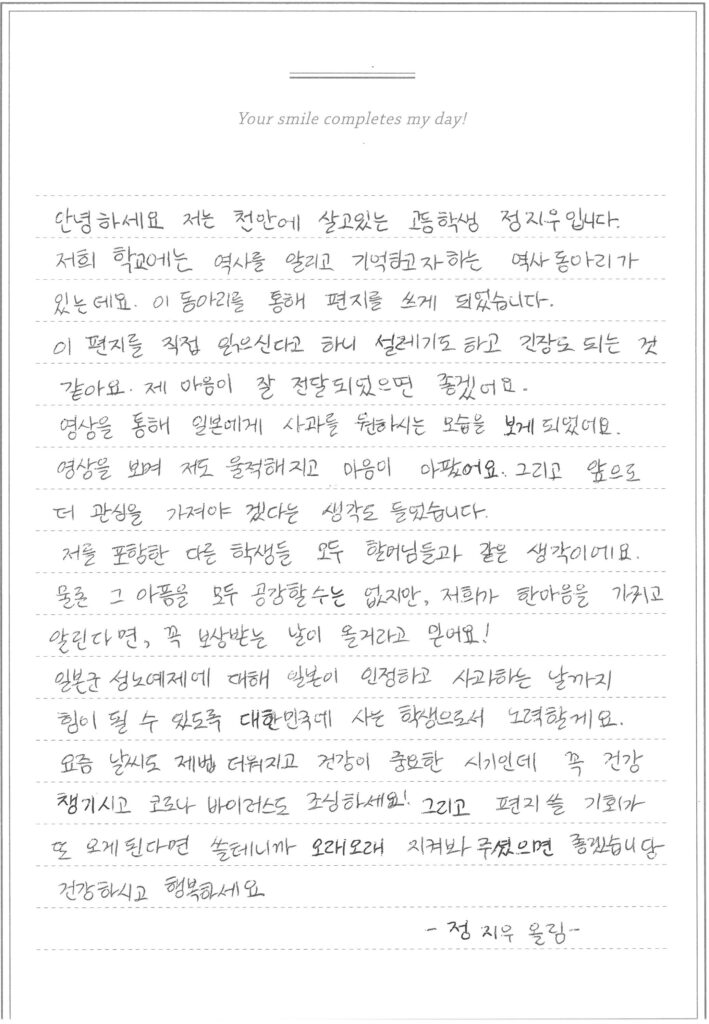 Your smile completes my day!
안녕하세요 저는 천안에 살고있는 고등학생 정지우입니다.
저희 학교에는 역사를 알리고 기억하고자하는 역사동아리가
있는데요. 이 동아리를 통해 편지를 쓰게 되었습니다.
이 편지를 직접 읽으신다고 하니 설레기도 하고 긴장도 되는 것
같아요. 제 마음이 잘 전달되었으면 좋겠어요.
영상을 통해 일본에게 사과를 원하시는 모습을 보게되었어요.
영상을 보며 저도 울적해지고 마음이 아팠어요. 그리고 앞으로
더 관심을 가져야 겠다는 생각도 들었습니다.
저를 포함한 다른 학생들 모두 할머님들과 같은 생각이에요.
물론 그 아픔을 모두 공감할수는 없지만, 저희가 한마음을 가지고
알린다면, 꼭 보상받는 날이 올거라고 믿어요!
일본군 성노예제에 대해 일본이 인정하고 사과하는 날까지
힘이 될 수 있도록 대한민국에 사는 학생으로서 노력할게요.
요즘 날씨도 제법 더워지고 건강이 중요한 시기인데 꼭 건강
챙기시고 코로나 바이러스도 조심하세요! 그리고 편지 쓸 기회가
또 오게된다면 쓸테니까 오래오래 지켜봐 주셨으면 좋겠습니당
건강하시고 행복하세요
- 정 지우 올림-